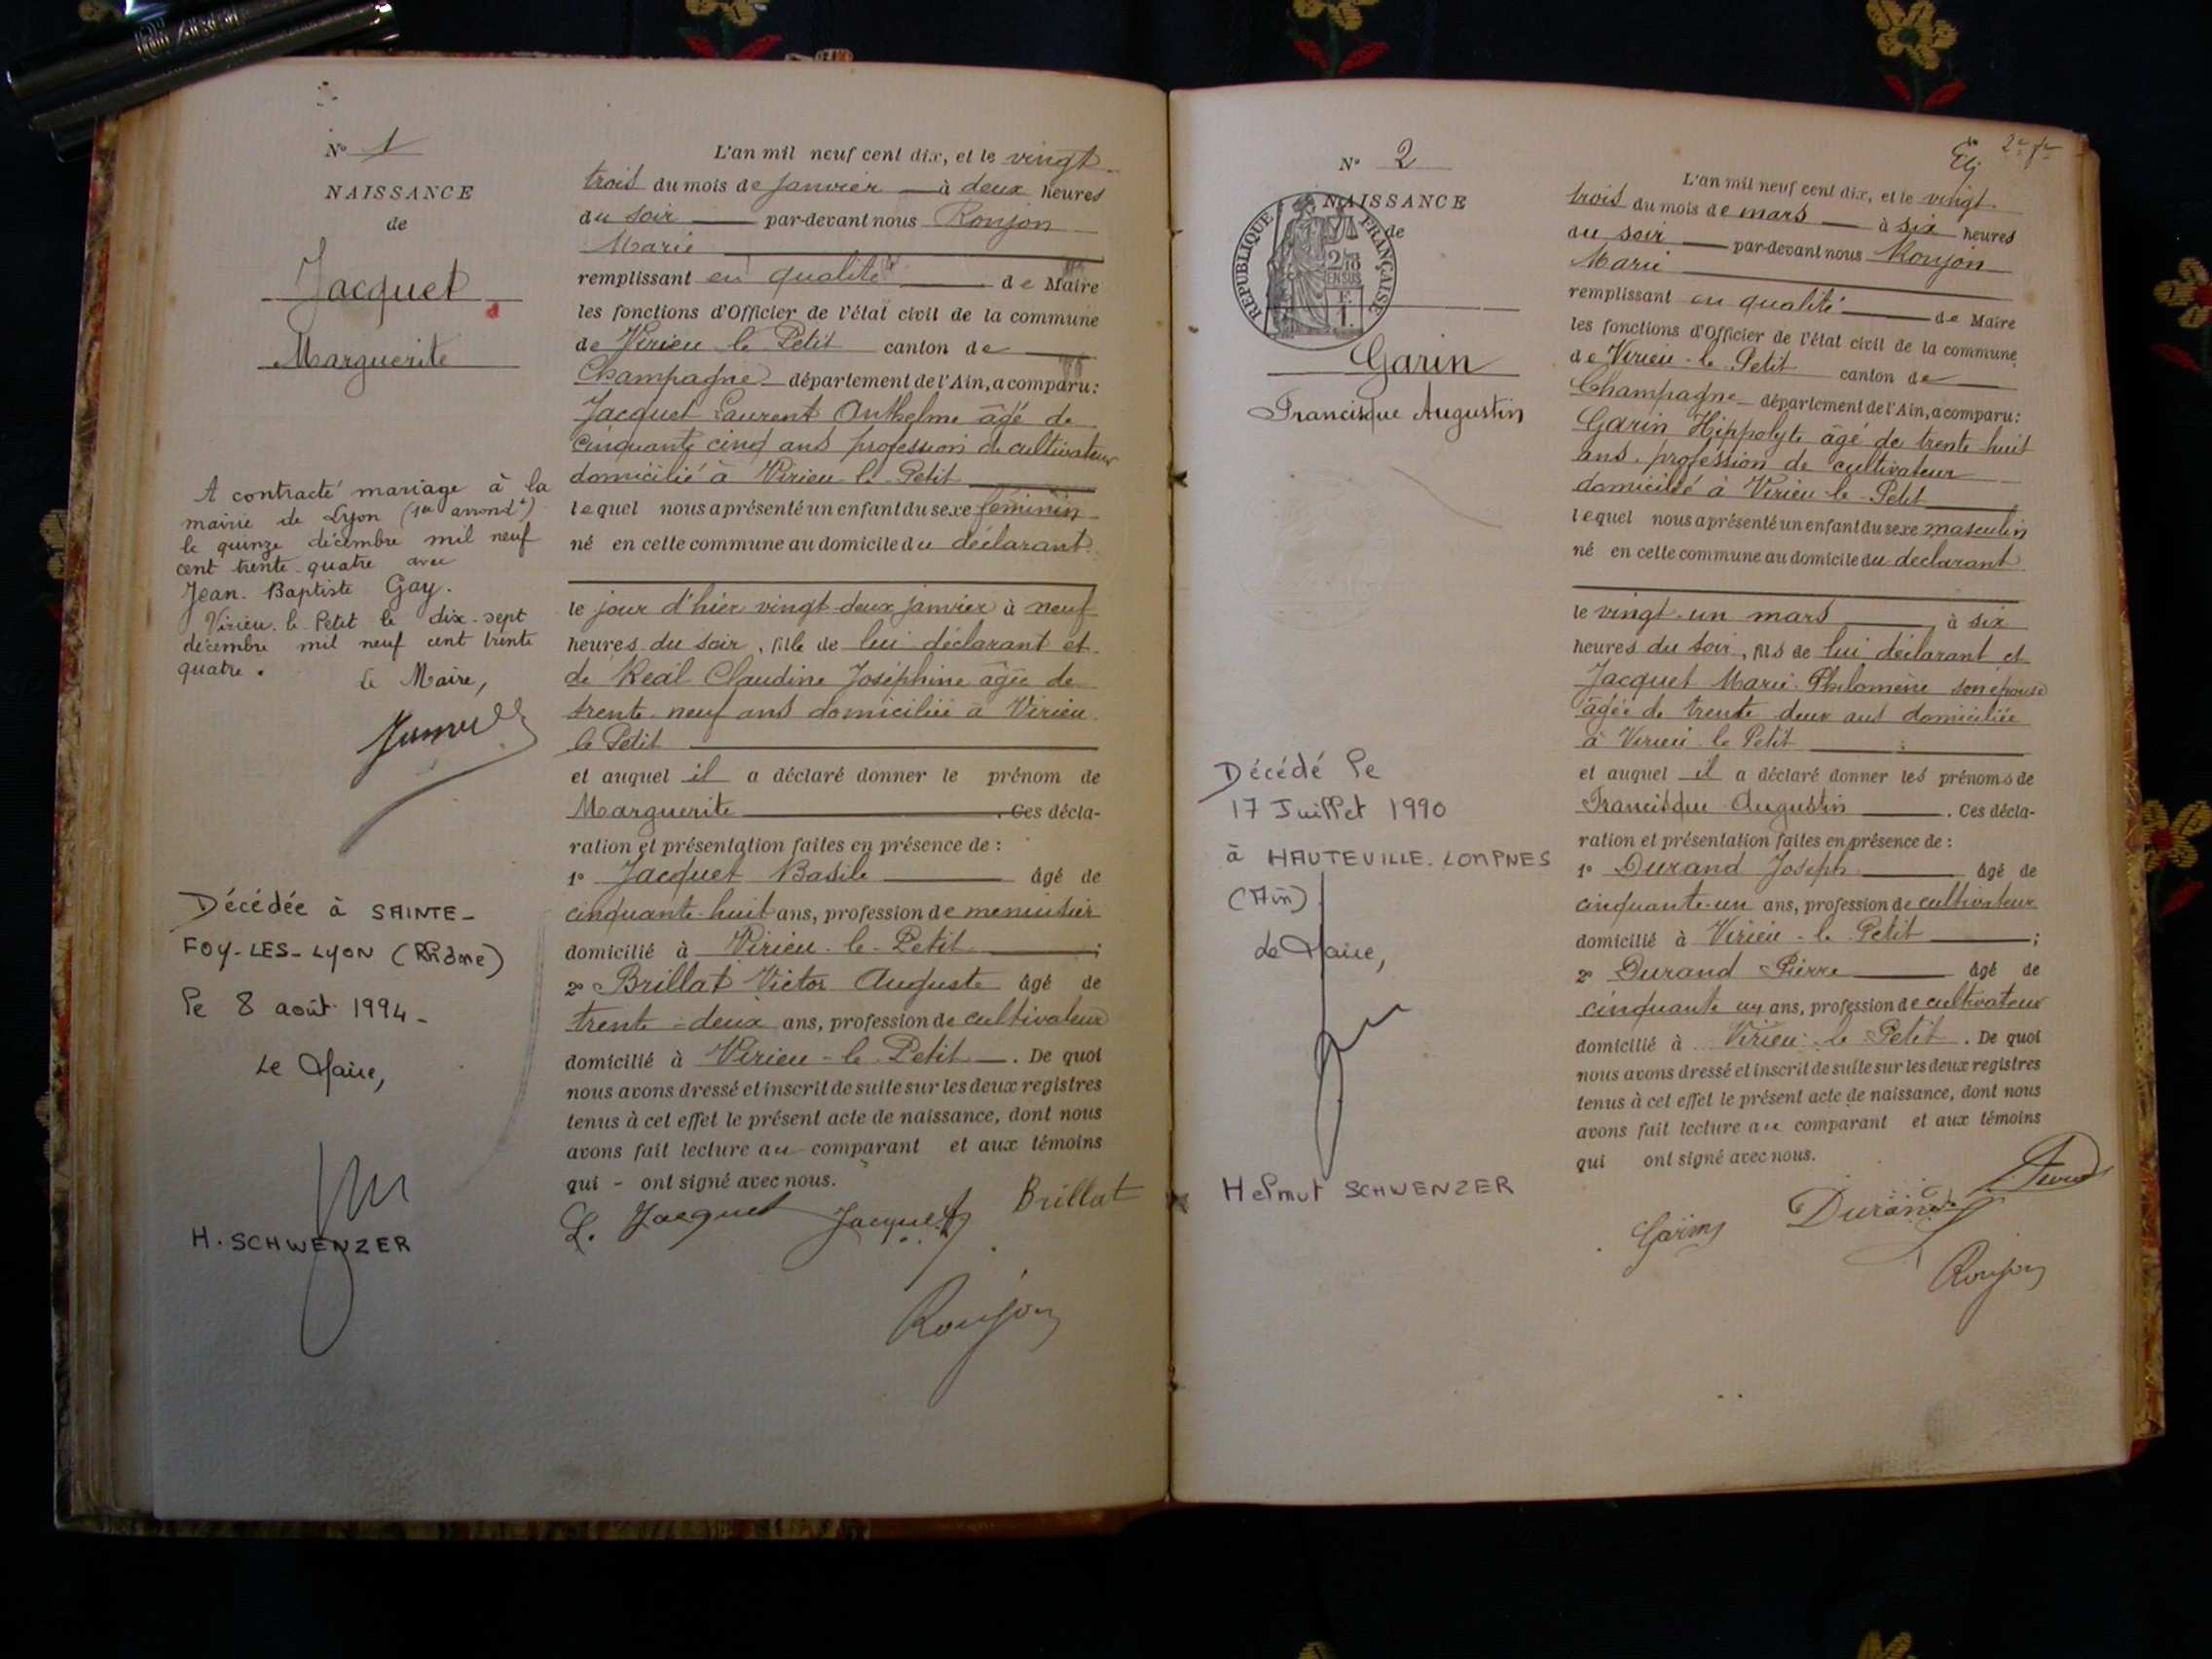 N° 1
NAISSANCE
de
Jacquet
Marguerite
A contracté mariage à la
mairie de Lyon (1er arrondt)
le quinze décembre mil neuf
cent trente-quatre avec
Jean-Baptiste Gay.
Virieu-le-Petit le dix-sept
décembre mil neuf cent trente
quatre.
Le Maire,
Décédée à SAINTE-
FOY-LES-LYON (Rhône)
le 8 août 1994-
Le Maire,
H. SCHWENZER
L'an mil neuf cent dix, et le vingt
trois du mois de janvier à deux heures
du soir par-devant nous Roujon
Marie
remplissant en qualité de Maire
les fonctions d'Officier de l'état civil de la commune
de Virieu le Petit canton de
Champagne département de l'Ain, a comparu:
Jacquet Laurent Anthelme âgé de
cinquante cinq ans profession de cultivateur
domicilié à Virieu-le-Petit
lequel nous a présenté un enfant du sexe féminin
né en cette commune au domicile du déclarant
le jour d'hier vingt-deux janvier à neuf
heures du soir, fille de lui déclarant et
de Réal Claudine Joséphine âgée de
trente-neuf ans domiciliée à Virieu
le Petit
et auquel il a déclaré donner le prénom de
Marguerite . Ces décla-
ration et présentation faites en présence de :
1° Jacquet Basile âgé de
cinquante-huit ans, profession de menuisier
domicilié à Virieu-le-Petit ;
2° Brillat Victor Auguste âgé de
trente-deux ans, profession de cultivateur
domicilié à Virieu-le-Petit . De quoi
nous avons dressé et inscrit de suite sur les deux registres
tenus à cet effet le présent acte de naissance, dont nous
avons fait lecture au comparant et aux témoins
qui - ont signé avec nous.
L. Jacquet Jacquet Brillat
Roujon
N° 2
NAISSANCE
de
RÉPUBLIQUE FRANÇAISE
2/10
EN SUS
Garin
Francisque Augustin
Décédé le
17 Juillet 1990
à HAUTEVILLE-LOMPNES
(Ain)
Le Maire,
Helmut SCHWENZER
L'an mil neuf cent dix, et le vingt-
trois du mois de mars à six heures
du soir par-devant nous Roujon
Marie
remplissant en qualité de Maire
les fonctions d'Officier de l'état civil de la commune
de Virieu-le-Petit canton de
Champagne département de l'Ain, a comparu:
Garin Hippolyte âgé de trente huit
ans profession de cultivateur
domicilié à Virieu-le-Petit
lequel nous a présenté un enfant du sexe masculin
né en cette commune au domicile du déclarant
le vingt-un mars à six
heures du soir, fils de lui déclarant et
Jacquet Marie Philomène son épouse
âgée de trente deux ans domiciliée
à Virieu le Petit
et auquel il a déclaré donner les prénoms de
Francisque Augustin . Ces décla-
ration et présentation faites en présence de :
1° Durand Joseph âgé de
cinquante-un ans, profession de cultivateur
domicilié à Virieu-le-Petit ;
2° Durand Pierre âgé de
cinquante un ans, profession de cultivateur
domicilié à Virieu-le Petit . De quoi
nous avons dressé et inscrit de suite sur les deux registres
tenus à cet effet le présent acte de naissance, dont nous
avons fait lecture au comparant et aux témoins
qui ont signé avec nous.
Garin Durand
Roujon